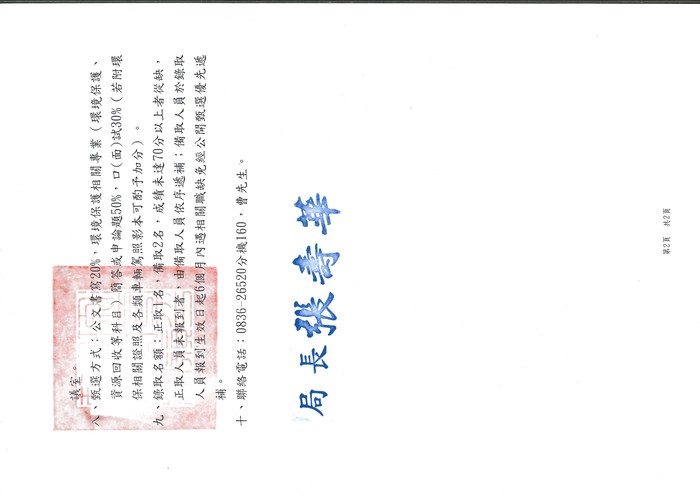 議室。
八、甄選方式：公文書寫20%，環境保護相關專業（環境保護、
資源回收等科目）簡答或申論題50%，口(面)試30%（若附環
保相關證照及各類車輛駕照影本可酌予加分）。
九、錄取名額：正取1名，備取2名，成績未達70分以上者從缺，
正取人員未報到者，由備取人員依序遞補；備取人員於錄取
人員報到生效日起6個月內遇相關職缺免經公開甄選優先遞
補。
十、聯絡電話：0836-26520分機160，曹先生。
局長張壽華
第2頁 共2頁